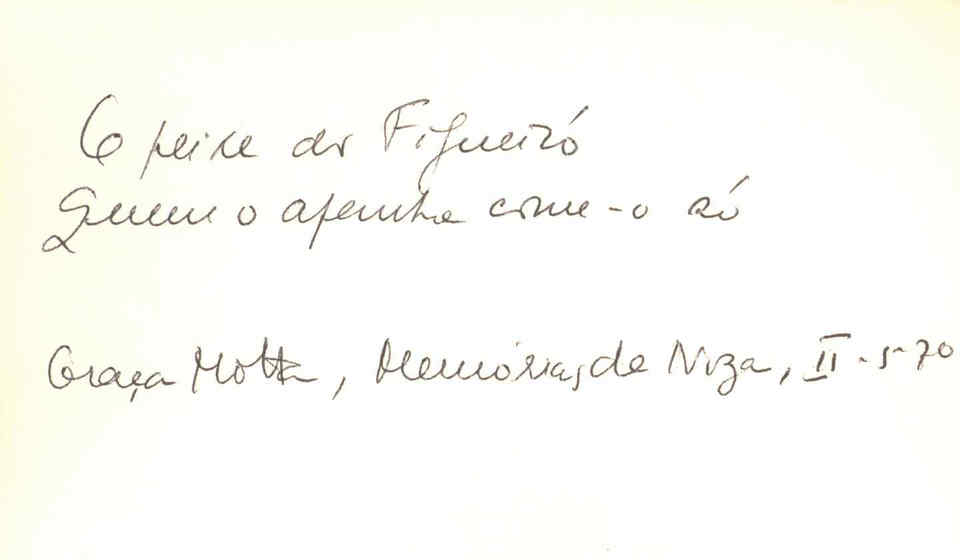 O peixe do Figueiró
Quem o apanha come-o só
Graça Motta, Memórias de Niza, II-5-70